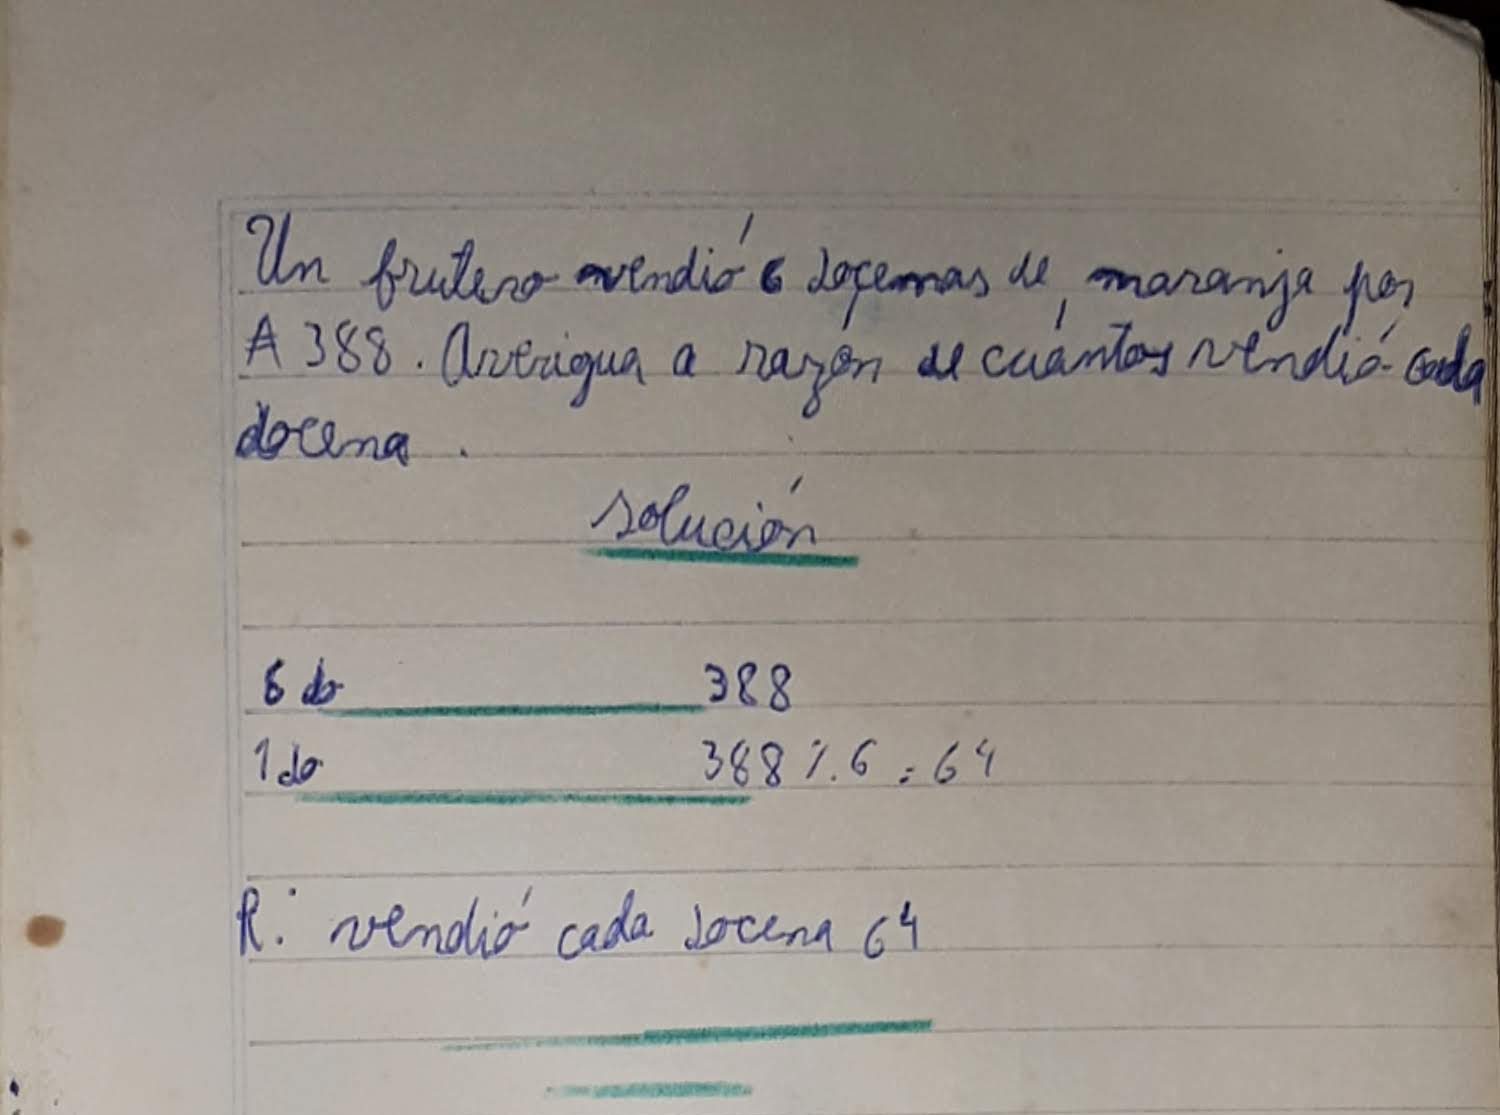 Un frutero vendió 6 docenas de naranja por
₳ 388. Averigua a razón de cuántos vendió cada
docena.
solución
6 do 388
1 do 388 % 6 = 64
R: vendió cada docena 64